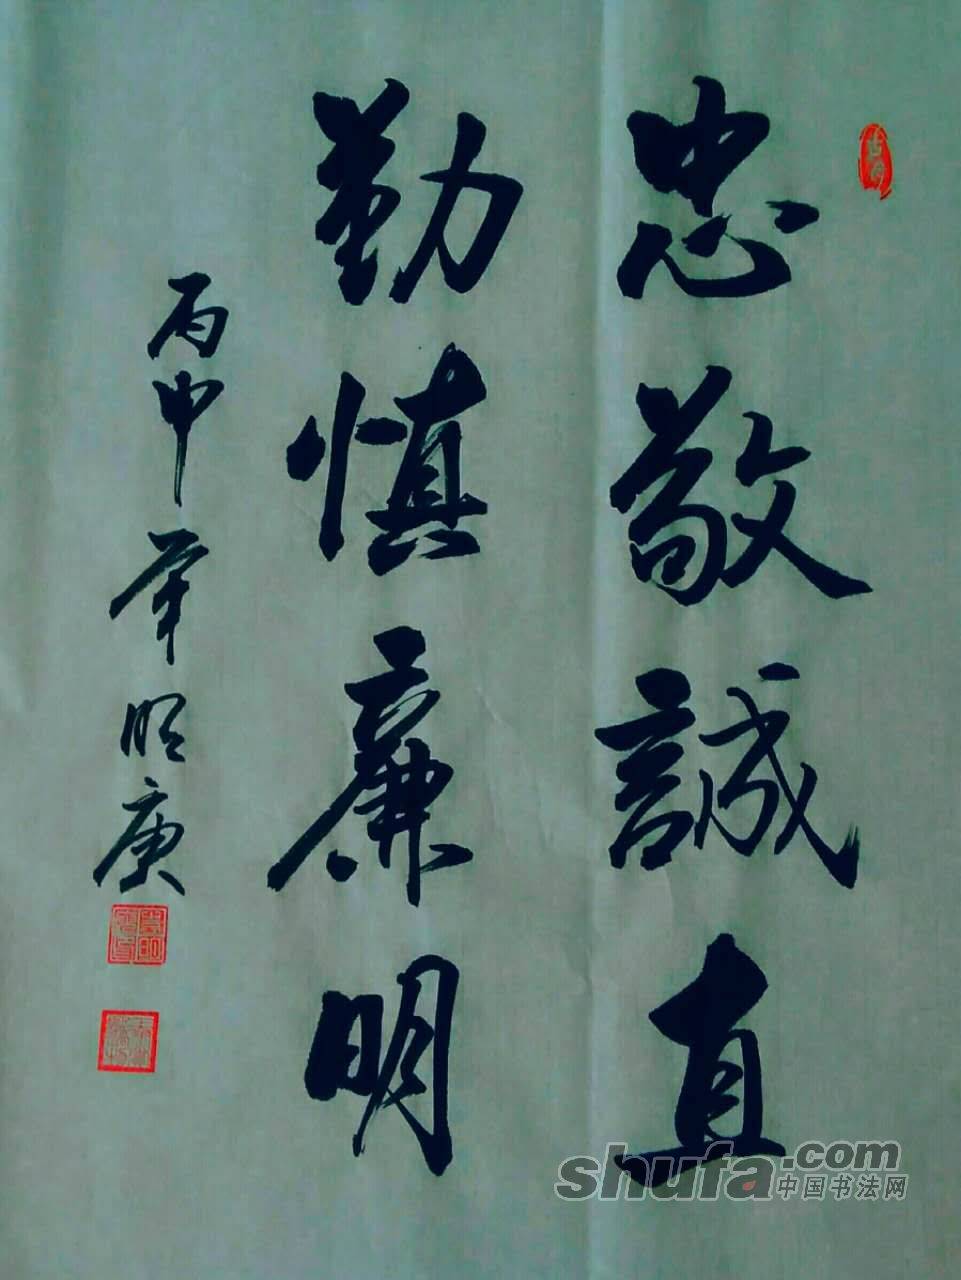 忠敬誠直
勤慎廉明
丙申年明庚
shufa.com
中国书法网